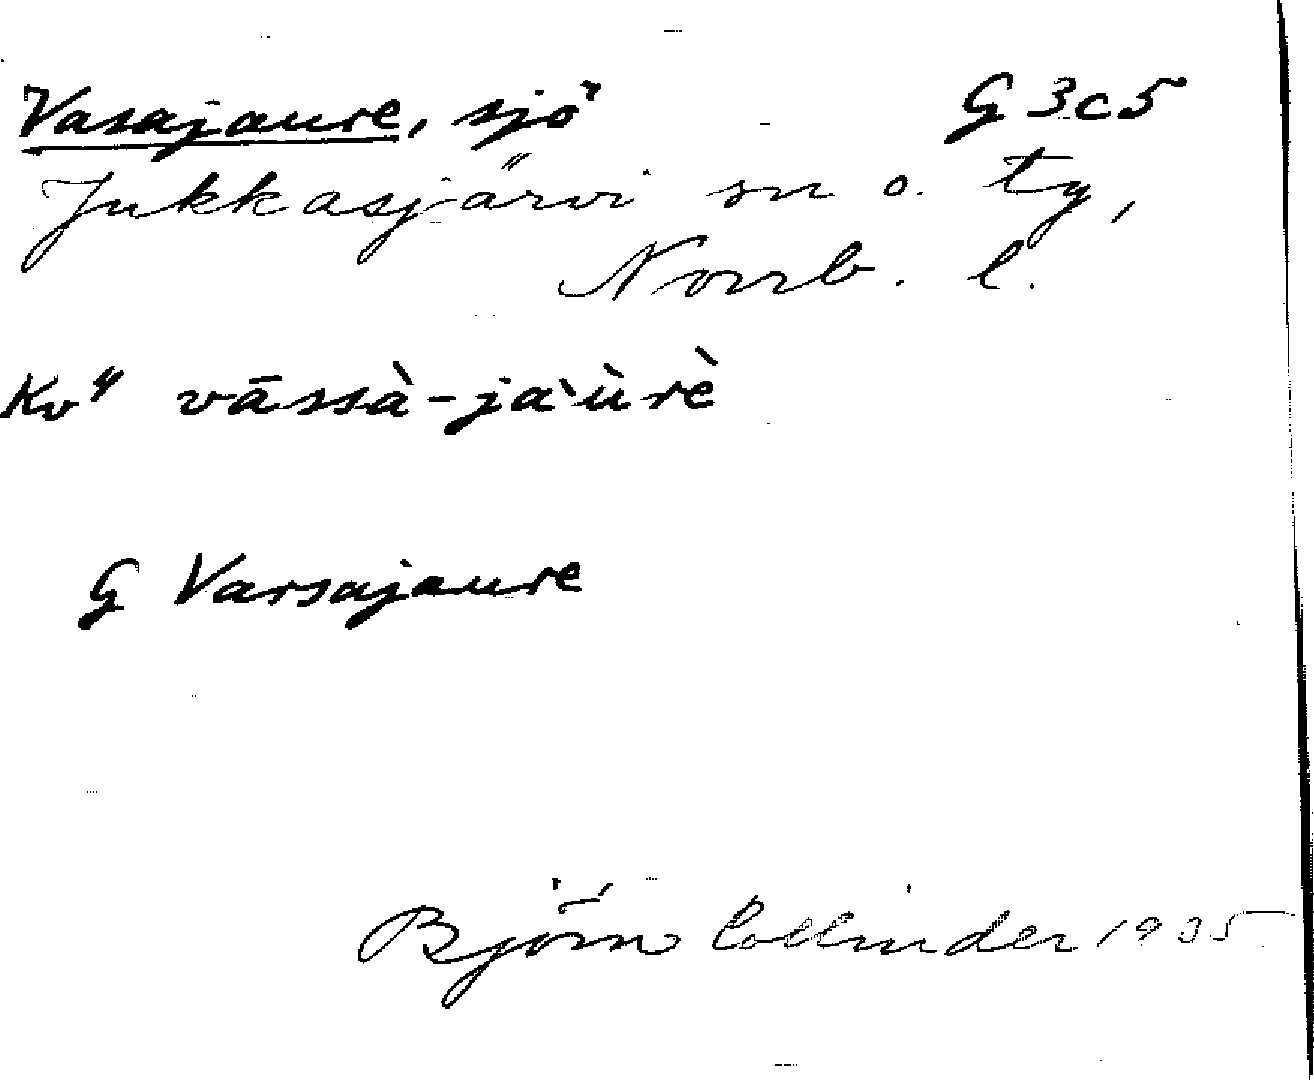 Vasajaure, sjö G 3c5
Jukkasjärvi sn o. tg,
Norrb. l.
Kv" vāssà-jaùrè
G Varsajaure
Björn Collinder 1935